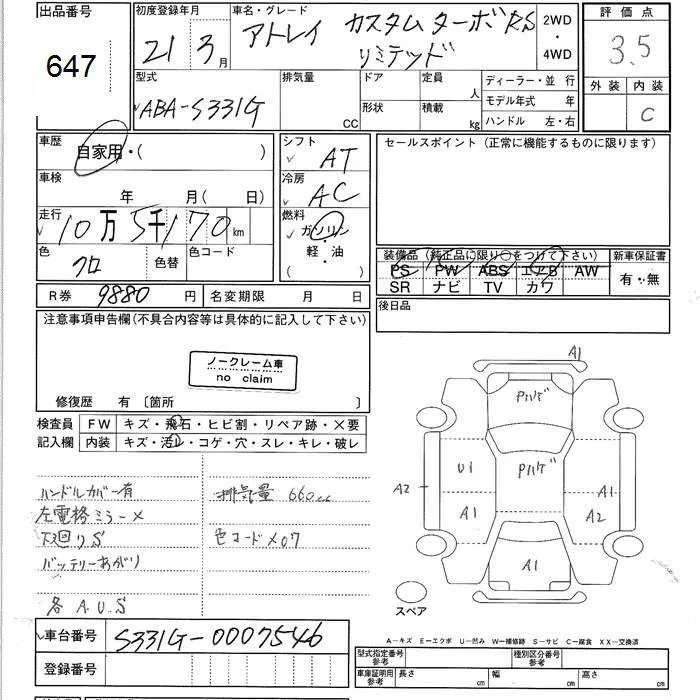 出品番号
647
初度登録年月
21 3月
車名・グレード
アトレイ カスタム ターボRS
リミテッド
2WD
・
4WD
評価点
3.5
外装 内装
C
型式
ABA-S331G
排気量
CC
ドア
形状
定員
人
積載
kg
ディーラー・並行
モデル年式 年
ハンドル 左・右
車歴
自家用・( )
シフト
AT
セールスポイント (正常に機能するものに限ります)
車検
年 月( 日)
冷房
AC
走行
10万5千170km
燃料
ガソリン
軽・油
( )
色
クロ
色替
色コード
装備品 (純正品に限り○をつけて下さい)
新車保証書
PS PW ABS エアB AW
有・無
SR ナビ TV カワ
R券 9880 円
名変期限 月 日
後日品
注意事項申告欄(不具合内容等は具体的に記入して下さい)
ノークレーム車
no claim
修復歴 有 〔箇所 〕
検査員
記入欄
FW キズ・飛石・ヒビ割・リペア跡・×要
内装 キズ・汚レ・コゲ・穴・スレ・キレ・破レ
ハンドルカバー有
排気量 660cc
左電格ミラー×
下廻りS
色コードX07
バッテリーあがり
各 A.U.S
A1
Pハゲ
U1
Pハゲ
A2
A1
A1
A2
A1
スペア
A―キズ E―エクボ U―凹み W―補修跡 S―サビ C―腐食 XX―交換済
車台番号 S331G-0007546
登録番号
型式指定番号
参考
種別区分番号
参考
車庫証明用
参考
長さ cm
幅 cm
高さ cm